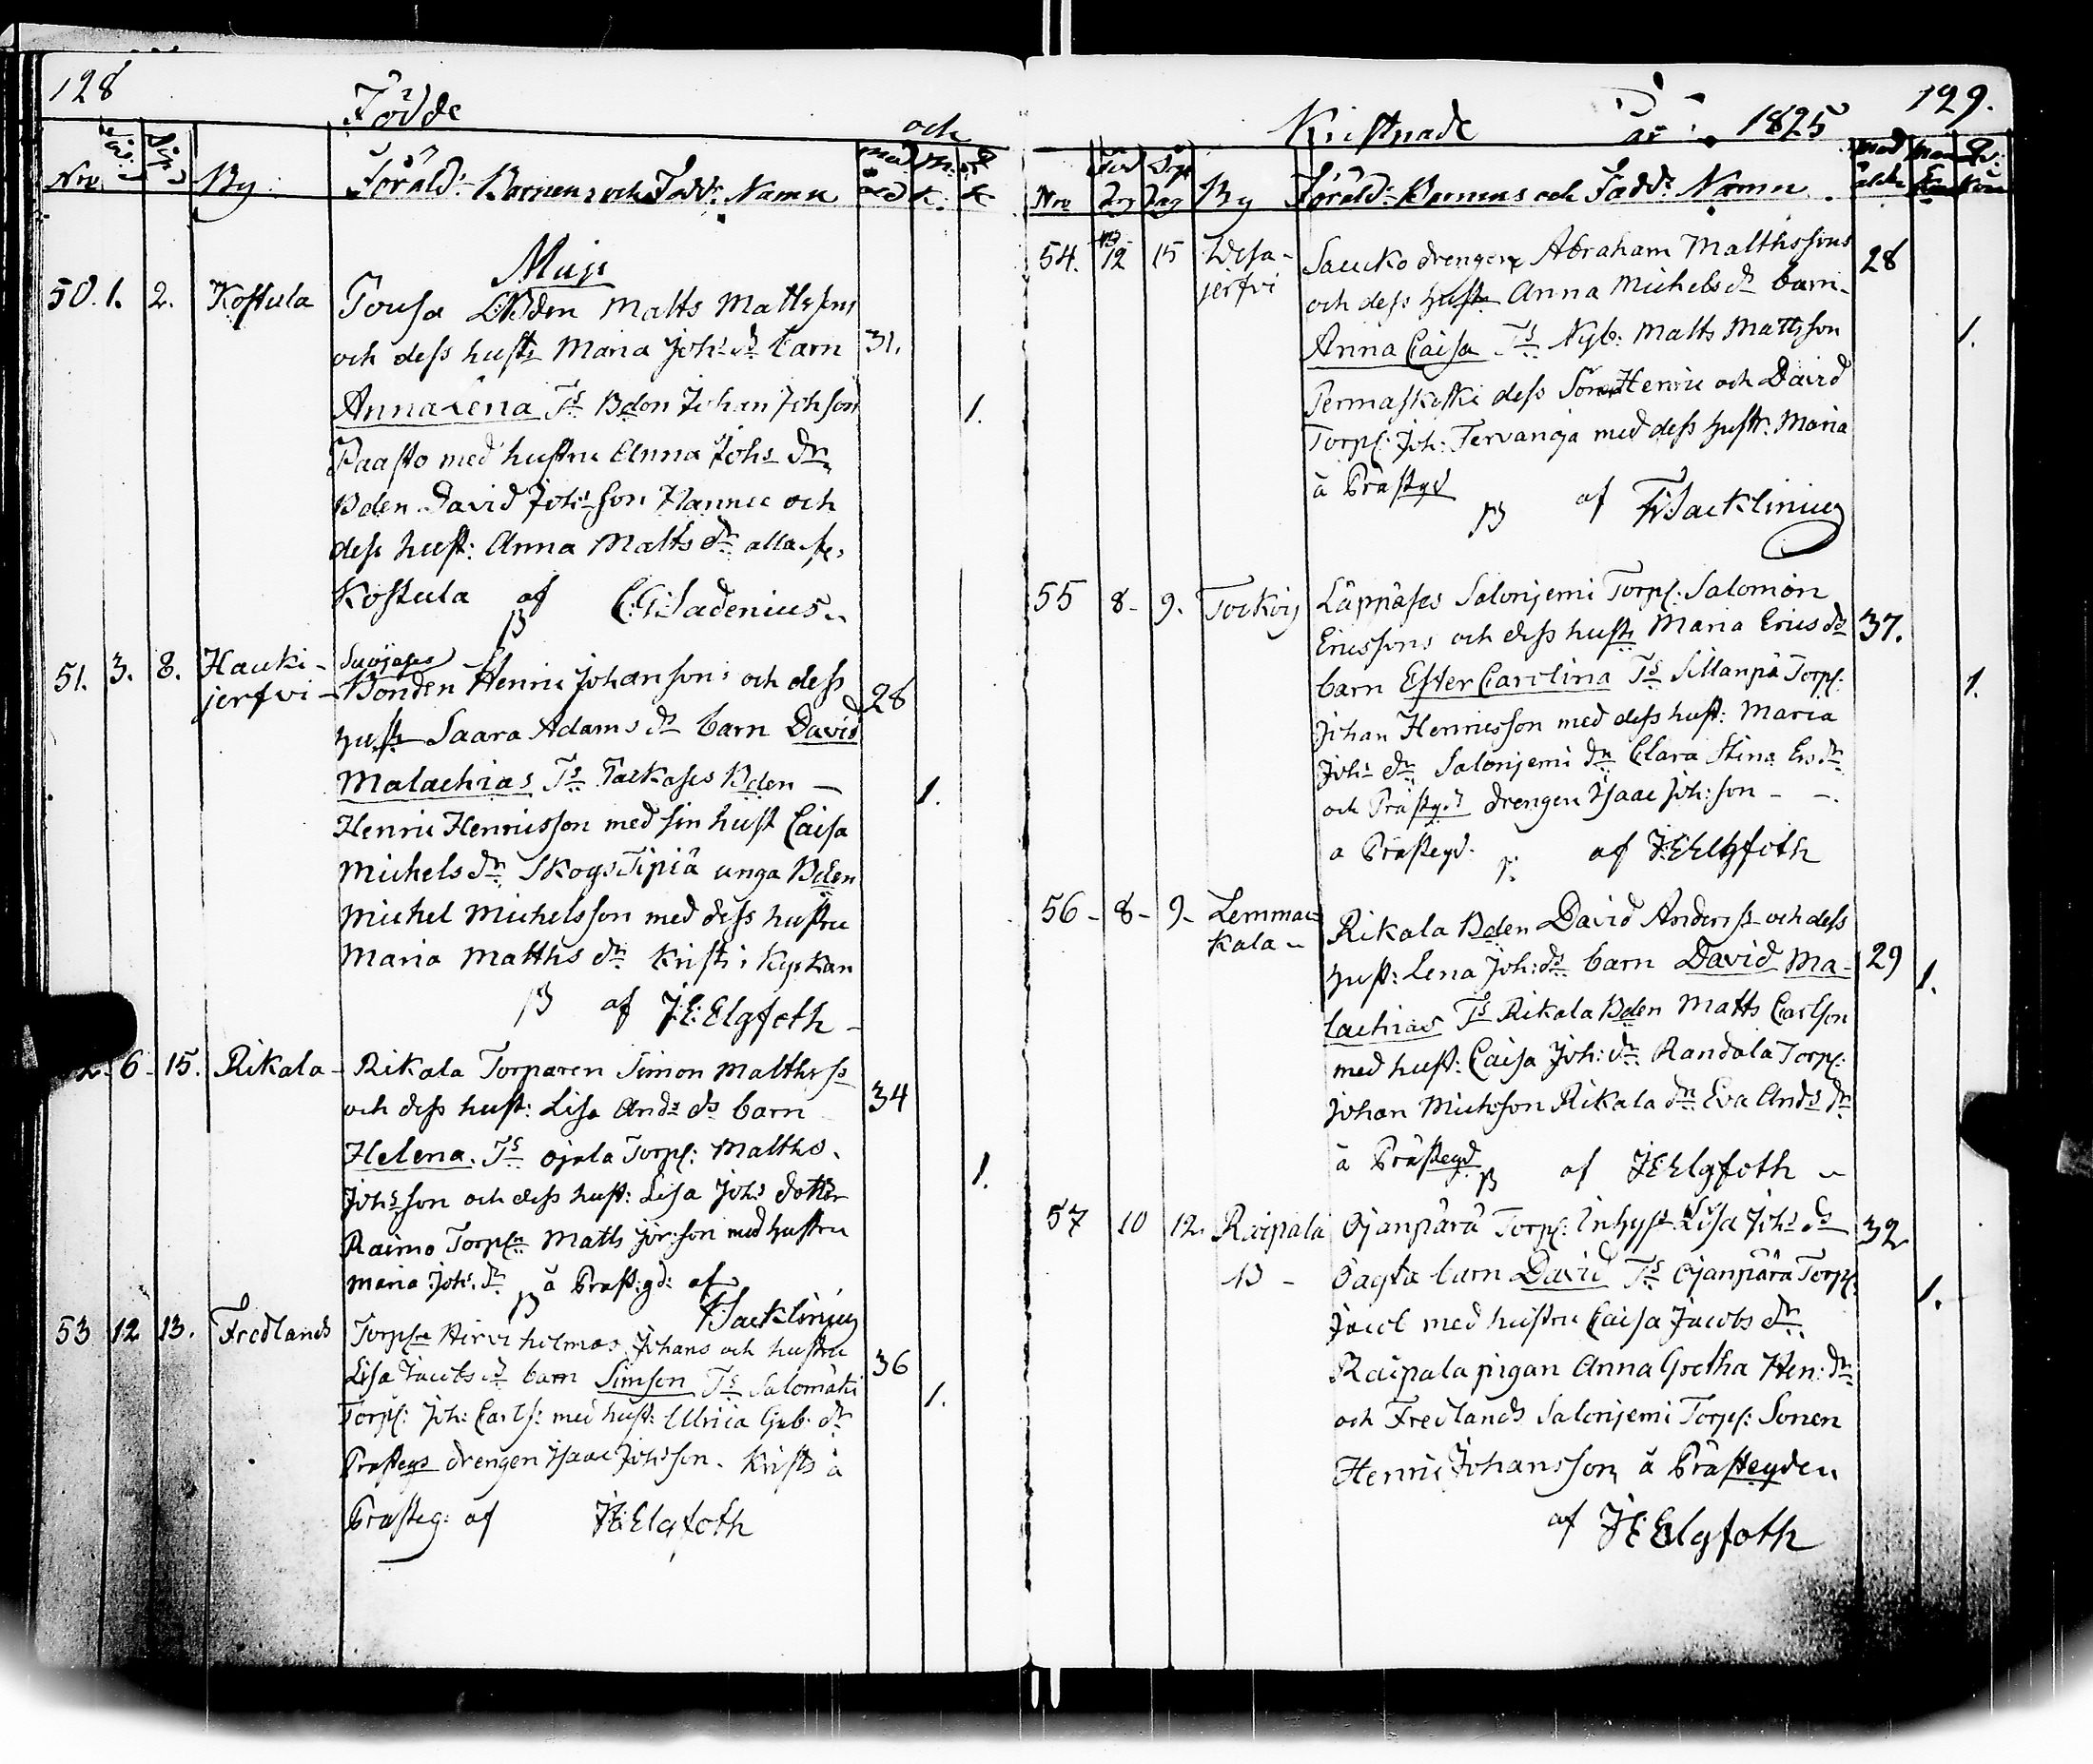 128
Födde och
Nro Föd: Döp: By: Föräld: Barnens och Fadd: Namn mod åld M: k: Q k
Maji
50. 1. 2. Kostula Tousa Bden Matts Mattssons
och dess hustr Maria Johs dr barn 31.
Anna Lena Ts Bdon Johan Johsson 1.
Paasto med hustru Anna Johs dr
Bden David Johsson Hannu och
dess hust: Anna Matts dr alla fr.
Kostula af C:G:Sadenius
51. 3. 8. Hauki- Suojases
jerfvi - Bonden Henric Johansons och dess 28
hustr Saara Adams dr barn David
Malachias Ts Tackases Bden - 1.
Henric Henricsson med sin hust Caisa
Michels dr Skogs Tipiä unga Bden
Michel Michelsson med dess hustru
Maria Matths dr Krist i Kyrkan
af J:E:Elgfoth
2. 6. 15. Rikala - Rikala Torparen Simon Matthss
och dess hust: Lisa Ands dr barn 34
Helena. Ts Ojala Torp: Matths. 1.
Johsson och dess hust: Lisa Johs dotter
Raimo Torpn Matts Jör:son med hustru
Maria Johs dr å Präst:gd: af
FSacklinius
53 12 13. Fredlands Torpn Hirviholmas Johans och hustru
Lisa Jacobs dr barn Simson Ts Salomäki 36 1.
Torp: Joh: Carls: med hust: Ulrica Gab: dr
Prästegs drengen Isaac Johsson. Krists å
Prästeg: af J:E:Elgfoth
Kristnade år 1825 129.
Nro Föd dag Döp dag By Föräld: Barnens och Fadd: Namn mod ålder Man Kön Qv: Kön
54. 12 15 Wesa- Saucko drengen Abraham Matthssons 28
jerfvi och dess hustr Anna Michels dr barn
Anna Caisa Ts Nyb: Matts Mattsson 1.
Permaskoski dess Söner Henric och David
Torp: Joh: Tervanoja med dess hustr: Maria
å Prästgd af FSacklinius
55 8- 9. Torkois Läppäses Salonjemi Torp: Salomon
Ericssons och dess hustr Maria Erics dr 37.
barn Ester Carolina Ts Sillanpä Torp: 1.
Johan Henricsson med dess hust: Maria
Johs dr Salonjemi dr Clara Stina Ers dr
och Prästgds drengen Isaac Joh:son - -
å Prästegd. af J:E:Elgfoth
56- 8- 9- Lemma- Rikala Bden David Anderss och dess
kala hust: Lena Joh: dr barn David Ma- 29 1.
lachias Ts Rikala Bden Matts Carlson
med hust: Caisa Joh: dr Randala Torp:
Johan Michsson Rikala dr Eva Ands dr
å Prästegd af J:E:Elgfoth
57 10 12. Raipala Ojanpärä Torp: Inhyst Lisa Johs dr 32
Öagta barn David Ts Ojanpärä Torp: 1.
Jacob med hustru Caisa Jacobs dr
Raipala pigan Anna Gretha Hen: dr
och Fredlands Salonjemi Torp: Sonen
Henric Johansson, å Prästegden
af J:E:Elgfoth